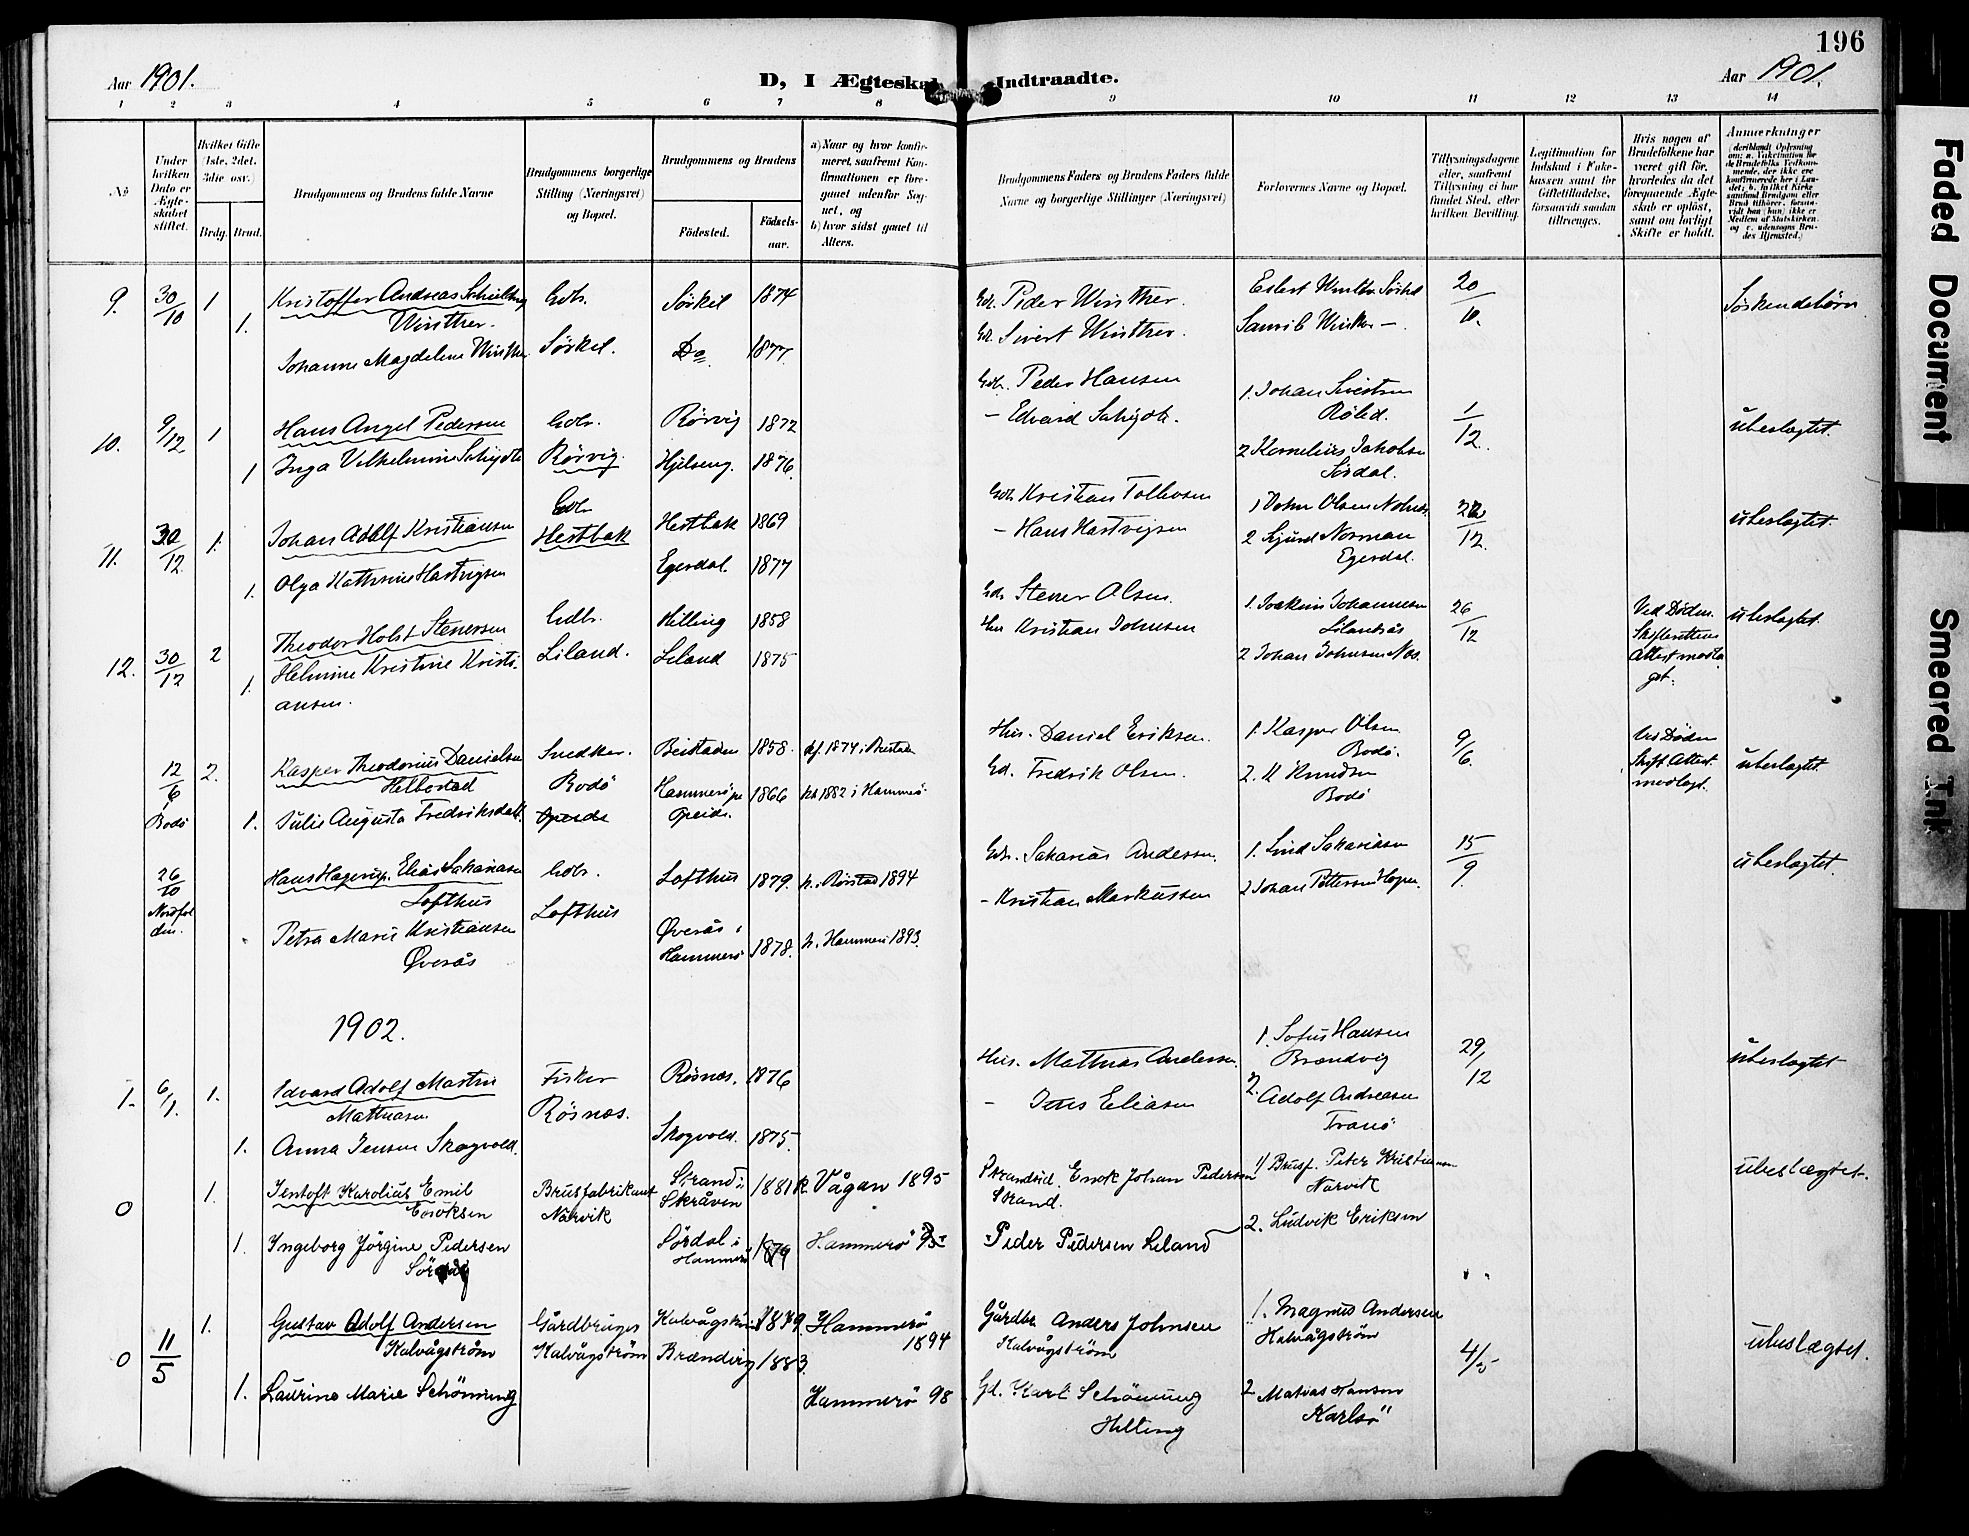 196
Aar 1901.
D, I Ægteskab Indtraadte.
Aar 1901.
1 2 3 4 5 6 7 8 9 10 11 12 13 14
No
Under hvilken Dato er Ægteskabet stiftet.
Hvilket Gifte (1ste, 2det, 3die osv.)
Brdg. Brud.
Brudgommens og Brudens fulde Navne
Brudgommens borgerlige Stilling (Næringsvei) og Bopæl.
Brudgommens og Brudens
Födested. Födsels-aar.
a) Naar og hvor konfirmeret, saafremt Konfirmationen er foregaaet udenfor Sognet, og
b) hvor sidst gaaet til Alters.
Brudgommens Faders og Brudens Faders fulde Navne og borgerlige Stillinger (Næringsvei)
Forlovernes Navne og Bopæl.
Tillysningsdagene eller, saafremt Tillysning ei har fundet Sted, efter hvilken Bevilling.
Legitimation for Indskud i Enkekassen samt for Giftetilladelse, forsaavidt saadan tiltrænges.
Hvis nogen af Brudefolkene har været gift för, hvorledes da det foregaaende Ægteskab er oplöst, samt om lovligt Skifte er holdt.
Anmærkninger
9. 30/10 1 Kristoffer Andreas Schielberg Gdb. Sörkil 1874 Gd. Peder Winther. Eilert Winther Sörkil 20/10. Söskendebörn
Winther.
1. Johanne Magdelene Winther Sörkil. Do 1877. Gd. Sivert Winther.
10. 9/12 1 Hans Angel Pedersen Gdb. Rörvig 1872 Gdb. Peder Hansen 1. Johan Sivertsen 1/12. ubeslægtet.
Röled.
1 Inga Vilhelmine Schjøth Rörvig. Hjelseng. 1876. – Edvard Schjøth. 2 Kornelius Jakobsen
Sördal.
11. 30/12 1. Johan Adolf Kristiansen Gdb Hestbak Hestbak 1869 Gdb Kristian Tollevsen 1 Johan Olsen 22/12. ubeslægtet.
1. Olga Kathrine Hartvigsen Egerdal. 1877 – Hans Hartvigsen 2 Sjurd Norman
Egerdal.
12. 30/12 2 Theodor Holst Stenersen Gdbr. Killing 1858 Gdb Stener Olsen. 1. Joakim Johannesen 26/12 Ved Döden. ubeslægtet.
1. Helmine Kristine Kristiansen. Liland. Liland 1875 Hus Kristian Johnsen 2 Johan Johnsen Nes.
12/6 Bodö 2. Kasper Theodorius Danielsen Snedker. Beistaden 1858. kf. 1874 i Beistad Hus. Daniel Eriksen. 1. Kasper Olsen 9/6. ved Döden ubeslægtet.
Helbostad Bodö Bodö. Skift. Attest. medlagt.
1. Julie Augusta Fredriksdatt. Hammerö 1866 kf 1882 i Hammerö. Gd. Fredrik Olsen. 2. K Knudsen
Opeide. Bodö
26/10 Nordfolden. Hans Hagerup Elias Sakariasen Gdb. Lofthus 1879. k. Rörstad 1894 Gdb. Sakarias Andersen. 1. Lind Sakariasen 15/9. ubeslægtet.
Lofthus
Petra Marie Kristiansen Lofthus Øverås i Hammerö 1878. k. Hammerö 1893. – Kristian Markussen 2 Johan Pettersen
Øverås
1902.
1. 6/1. 1. Edvard Adolf Martin Fisker Rösnæs. 1876 Hus. Mathias Andersen. 1. Sofus Hansen 29/12 ubeslægtet
Mathiasen Rösnæs. Brændvig
1. Anna Jensen Skogvold. Skogvold. 1875. – Jens Eliasen 2. Adolf Andreasen
Tranö
0 1. Jentoft Karolius Emil Brusfabrikant Strand i 1881 k. Vågan 1895 Strandsid. Enok Johan Pedersen 1/ Brusf. Peter Kristiansen ubeslægtet.
Enoksen Narvik Skråven Strand. Narvik
1. Ingeborg Jörgine Pedersen Sördal i Hammerö 1879 Hammerö 95 Peder Pedersen Leland 2. Ludvik Eriksen
0 11/5 1. Gustav Adolf Andersen Gårdbruger Kalvågström 1879 Hammerö 1894 Gårdbr Anders Johnsen 1. Magnus Andersen 4/5 ubeslægtet.
Kalvågström Kalvågström Kalvågström Kalvågström
1. Laurine Marie Schöning Brændvig 1883. Hammerö 98 Gd. Karl Schöning 2 Matias Hansen
Hilting Karlsö
Faded Document
Smeared Ink